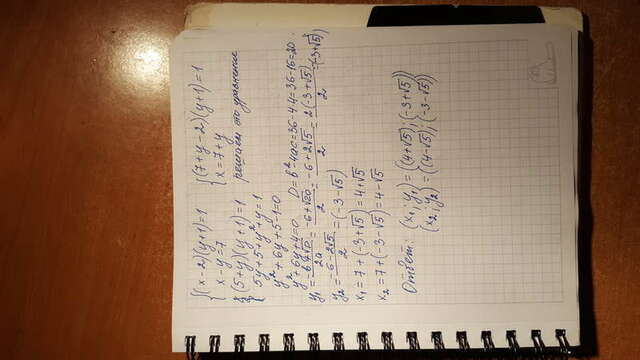 {(x-2)(y+1)=1 {(7+y-2)(y+1)=1
x-y=7 x=7+y
{(5+y)(y+1)=1 решаем это уравнение
5y+5+y²+y=1
y²+6y+5-1=0
y²+6y+4=0 D=b²-4ac=36-4·4=36-16=20
y₁=(-b+√D)/2a=(-6+√20)/2=(-6+2√5)/2=2(-3+√5)/2=(-3+√5)
y₂=(-6-2√5)/2=(-3-√5)
x₁=7+(-3+√5)=4+√5
x₂=7+(-3-√5)=4-√5
Ответ: (x₁;y₁)=((4+√5);(-3+√5))
(x₂;y₂)=((4-√5);(-3-√5))